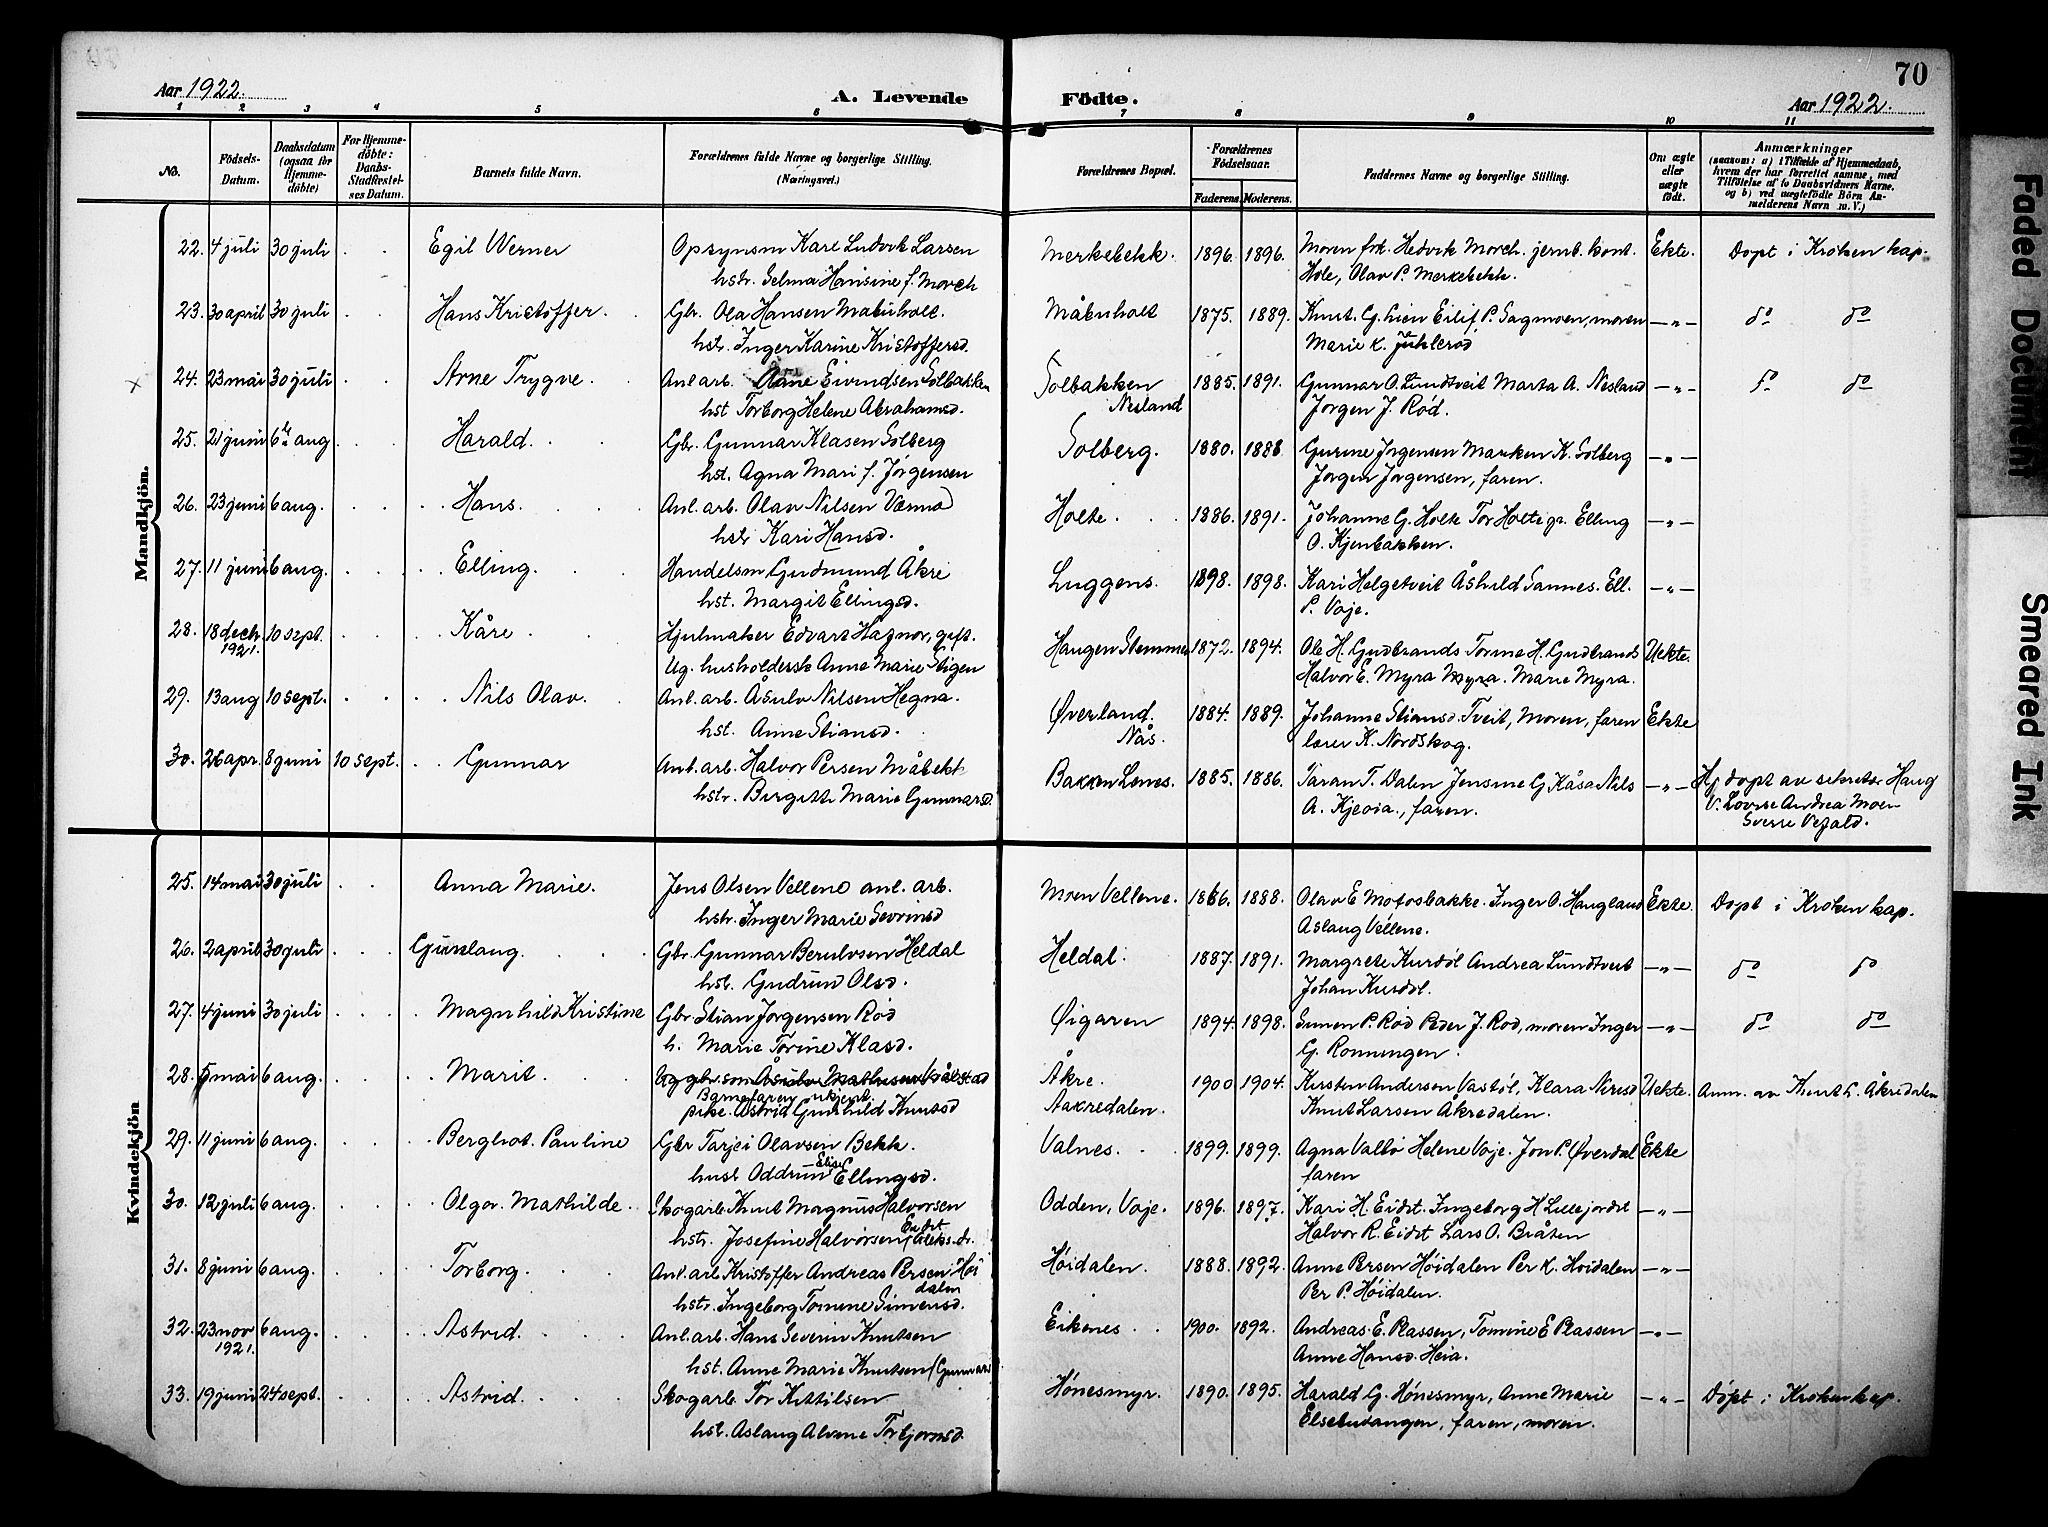 70
Aar 1922.
A. Levende Födte.
Aar 1922.
1 2 3 4 5 6 7 8 9 10 11
No.
Födsels-Datum.
Daabsdatum (ogsaa for Hjemme-döbte)
For Hjemme-döbte: Daabs-Stadfæstel-ses Datum.
Barnets fulde Navn.
Forældrenes fulde Navne og borgerlige Stilling. (Næringsvei.)
Forældrenes Bopæl.
Forældrenes Födselsaar.
Faderens. Moderens.
Faddernes Navne og borgerlige Stilling.
Om ægte eller uægte födt.
Anmærkninger
(saasom: a) i Tilfælde af Hjemmedaab, hvem der har forrettet samme, med Tilföielse af to Daabsvidners Navne, og b) ved uægtefödte Börn An-melderens Navn m. V.)
Mandkjön.
22. 4 juli 30 juli Egil Werner Opsynsm Karl Ludvik Larsen Merkebekk. 1896. 1896. Moren frk. Hedvik Morch. jernb. kont. Ekte. Døpt i Kroken kap.
hstr. Selma Hansine f. Morch Hole, Olav P. Merkebekk.
23. 30 april 30 juli Hans Kristoffer. Gbr. Ola Hansen Måbuholt. Måbuholt 1875. 1889. Knut. G. Lien Eilif P. Sagmoen, moren —"— do do
hstr. Inger Karine Kristoffersd. Marie K. Juhlerød
24. 23 mai 30 juli Arne Trygve. Anl arb. Eivindsen Solbakken Solbakken 1885. 1891. Gunnar O. Lundtveit Marta A. Nesland —"— do do
hst Torborg Helene Abrahamsd. Nesland Jørgen J. Rød.
25. 21 juni 6te aug Harald. Gbr. Gunnar Klasen Solberg Solberg. 1880. 1888 Gurine Jørgensen Marken K. Solberg —"—
hst. Agna Mari f. Jørgensen Jørgen Jørgensen, faren.
26. 23 juni 6 aug. Hans. Anl. arb. Olav Nilsen Holte. 1886. 1891. Johanne G. Holte Tor Holte gr. Elling —"—
hstr Kari Hansd. O. Kjenbakken.
27. 11 juni 6 aug. Elling. Handelsm Gudmund Åkre Luggens. 1898. 1898. Kari Helgetveit Åshild Sannes. Ell. —"—
hst. Margit Ellingsd. P. Voje.
28. 18 dech. 10 sept. Kåre. Hjulmaker Edvart Hagnor, gift. Haugen Stemmen 1872. 1894. Ole H. Gudbrands Tomine H. Gudbrands Uekte.
1921. Ug. husholderske Anne Marie Stigen Halvor E. Myra Myra. Marie Myra.
29. 13 aug 10 sept. Nils Olav. Anl. arb. Åsulv Nilsen Hegna. Øverland. 1884. 1889. Johanne Stiansd. Tveit, Moren, faren Ekte
hst. Anne Stiansd. Nås. lærer K. Nordskog.
30. 26 apr. 8 juni 10 sept. Gunnar Anl. arb. Halvor Persen Måbekk Bakken Lones. 1885. 1886. Taran T. Dalen Jensine G. Kåsa Nils —"— Hj døpt av sekretær Haug
hstr. Birgitte Marie Gunnarsd. A. Kjeoia., faren. V. Lovise Andrea Moen
Sverre Vefald.
Kvindekjön
25. 14 mai 30 juli Anna Marie. Jens Olsen Vellene anl. arb. Moen Vellene. 1886. 1888. Olav E Mofosbakke. Inger O. Haugland Ekte. Døpt i Kroken kap.
hstr. Inger Marie Sevrinsd Aslaug Vellene.
26. 2 april 30 juli Gunlaug. Gbr. Gunnar Berulvsen Heldal Heldal. 1887. 1891. Margrete Kurdøl Andrea Lundtveit —"— do do
hst. Gudrun Olsd. Johan Kurdøl.
27. 4 juni 30 juli Magnhild Kristine Gbr Stian Jørgensen Rød Øigaren 1894. 1898. Simen P. Rød Peder J. Rød, moren Inger —"— do do
h. Marie Torine Klasd. G. Ronningen.
28. 5 mai 6 aug. Marit. Ug gbr. søn Åsulv Mathisen Vråls tad Åkre. 1900 1904. Kirsten Andersen Vastøl, Klara Nirisd Uekte. Anm. av Knut L. Åkredalen
Barnefaren ukjent.
pike. Astrid Gunhild Knutsd Aakredalen. Knut Larsen Åkredalen.
29. 11 juni 6 aug. Bergliot. Pauline Gbr Tarjei Olavsen Bekk. Valnes. 1899. 1899. Agna Valbø Helene Voje. Jon P. Øverdal Ekte
hust Oddrun Elise Ellingsd. faren
30. 12 juli 6 aug. Olgor. Mathilde. Skogarb. Knut Magnus Halvorsen Odden, Voje. 1896. 1897. Kari H. Eidst. Ingeborg H Lillejordet —"—
hstr. Josefine Halvorsen Eidst Aleks. dr. Halvor R. Eidst Lars O. Bråten
31. 8 juni 6 aug. Torborg. Anl. arb. Kristoffer Andreas Persen Høi dalen Høidalen. 1888. 1892. Anne Persen Høidalen Per K. Høidalen —"—
hstr. Ingeborg Tomine Simensd. Per P. Høidalen.
32. 23 nov 6 aug. Astrid. Anl. arb. Hans Severin Knutsen Eikenes 1900. 1892. Andreas. E. Plassen, Tomine E Plassen —"—
1921. hst. Anne Marie Knutsen (Gunnarsd Anne Hansd. Heia.
33. 19 juni 24 sept. Astrid. Skogarb. Tor Kittilsen Hønesmyr. 1890. 1895. Harald G. Hønesmyr, Anne Marie —"— Døpt i Kroken kap.
hst. Aslaug Alvine Torbjørnsd. Elsebutangen, faren, moren.
Faded Document
Smeared Ink